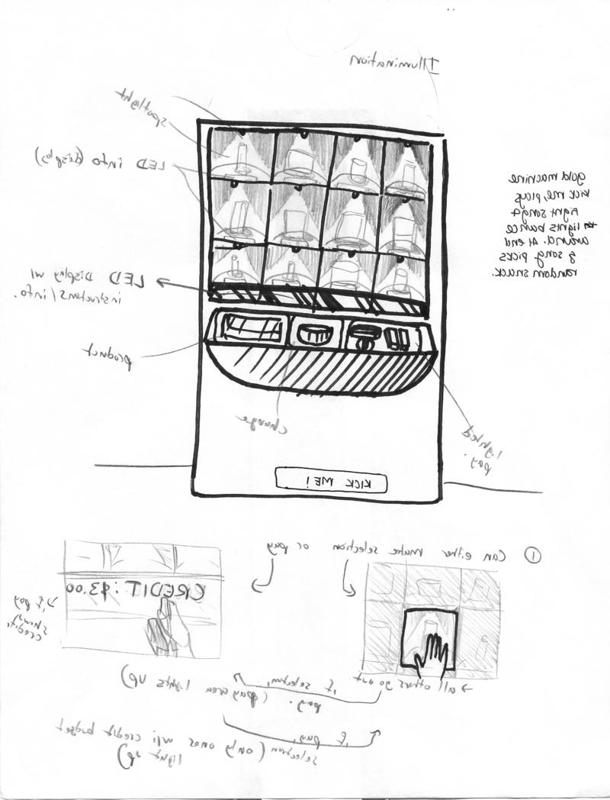 Illumination
spotlight
LED info (display)
gold machine
kick me, plays
fight song &
lights bounce
around. At end
of song, picks
random snack.
LED Display w/
instructions/info.
product
change
lighted
pay.
KICK ME!
① Can either make selection or pay
CREDIT: $3.00
→ if pay
shows
credit
→ all others go out
if selection,
pay. (pay area lights up)
if pay,
selection (only ones w/i credit budget
light up)